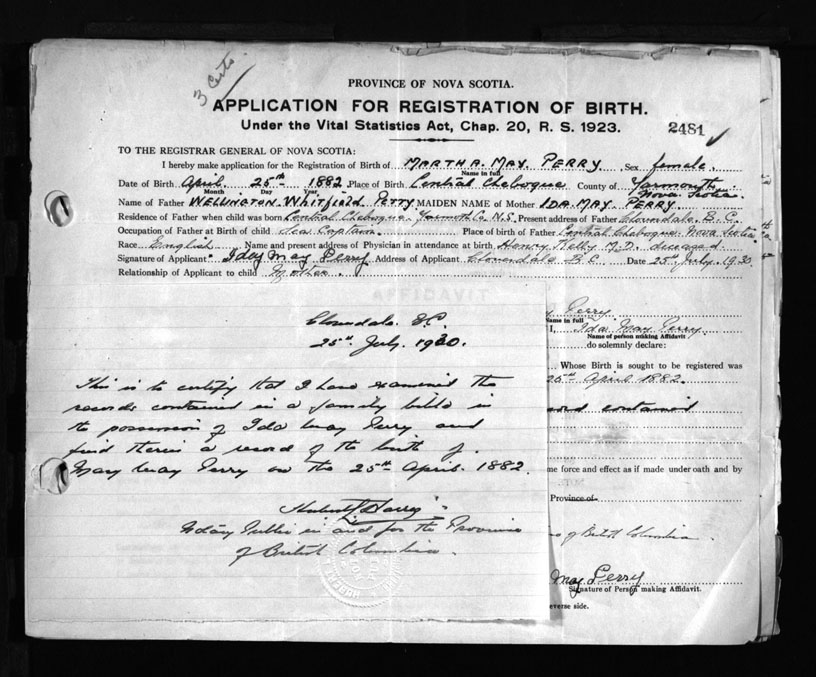 3 Certs
PROVINCE OF NOVA SCOTIA.
APPLICATION FOR REGISTRATION OF BIRTH.
Under the Vital Statistics Act, Chap. 20, R. S. 1923.
2481
TO THE REGISTRAR GENERAL OF NOVA SCOTIA:
I hereby make application for the Registration of Birth of MARTHA. MAY. PERRY Sex female.
Name in full
Date of Birth April 25th 1882 Place of Birth Central Chebogue County of Yarmouth Nova Scotia.
Month Day Year
Name of Father WELLINGTON WHITFIELD PERRY MAIDEN NAME of Mother IDA MAY PERRY.
Residence of Father when child was born Central Chebogue Yarmoth Co. N.S. Present address of Father Cloverdale. B. C.
Occupation of Father at Birth of child Sea Captain. Place of birth of Father Central Chebogue Nova Scotia
Race English Name and present address of Physician in attendance at birth Henry Kelly M.D. deceased
Signature of Applicant: Ida May Perry Address of Applicant Cloverdale B.C. Date 25th July. 1930
Relationship of Applicant to child Mother.
AFFIDAVIT
Perry
Name in full
I, Ida May Perry
Name of person making Affidavit
do solemnly declare:
Whose Birth is sought to be registered was
25th April 1882.
contained
me force and effect as if made under oath and by
Province of
of British Columbia
May Perry
Signature of Person making Affidavit.
everse side.
Cloverdale. B.C.
25th July. 1930.
This is to certify that I have examined the
records contained in a family bible in
the possession of Ida May Perry and
find therein a record of the birth of
May May Perry on the 25th April. 1882.
Notary Public in and for the Province
of British Columbia.